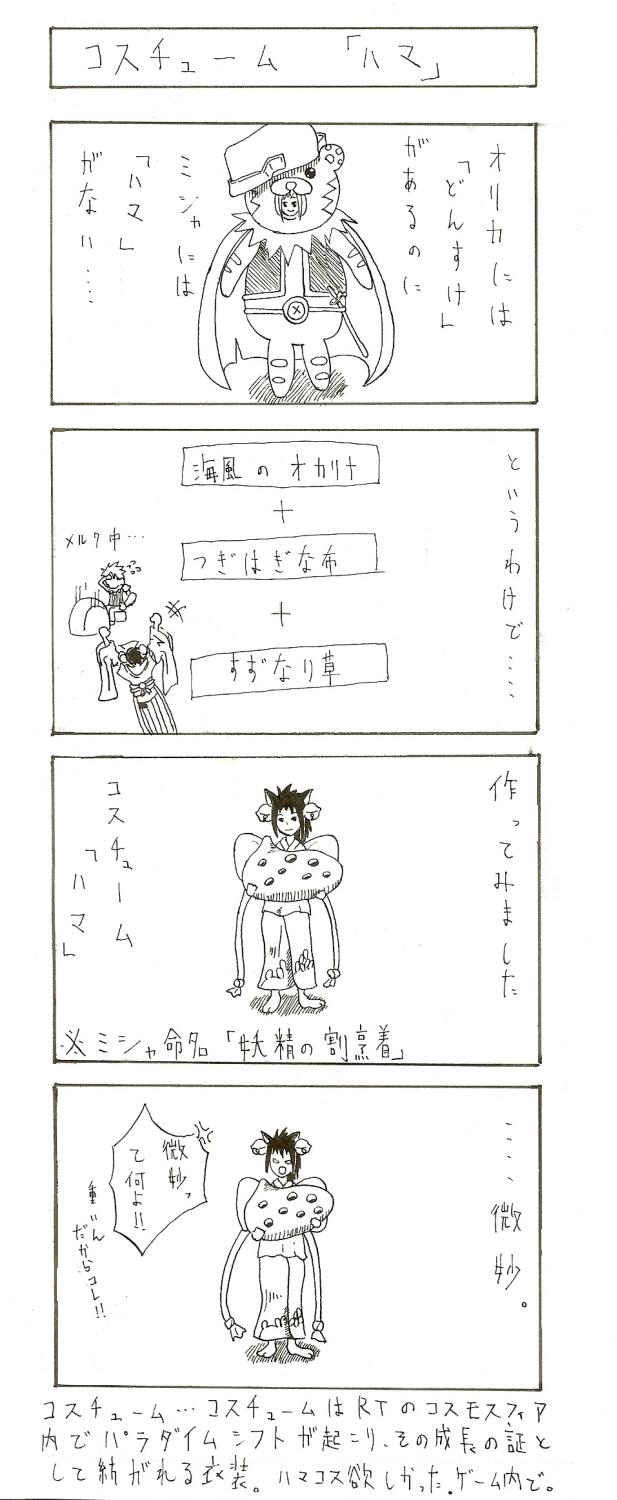 コスチューム 「ハマ」
オリカには
「どんすけ」
があるのに
ミシャには
「ハマ」
がない‥‥
というわけで‥‥
海風のオカリナ
+
つぎはぎな布
+
すずなり草
メルク中…
作ってみました
コスチューム
「ハマ」
※ミシャ命名「妖精の割烹着」
‥‥微妙。
微妙っ
て何よ!!
重いん
だからコレ!!
コスチューム…コスチュームはRTのコスモスフィア
内でパラダイムシフトが起こり、その成長の証と
して紡がれる衣装。ハマコス欲しかった。ゲーム内で。